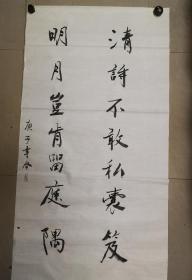 清詩不敢私囊笈
明月豈肯留庭隅
庚子年冬月